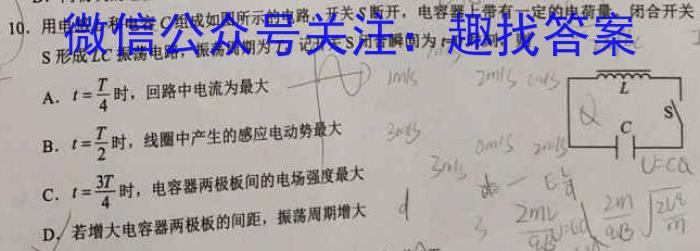 10. 用电感L和电容C组成如图所示的电路，开关S断开，电容器上带有一定的电荷量，闭合开关
微信公众号关注：趣找答案
S形成LC振荡电路，振荡周期为T，记开关S闭合瞬间为t
A. t=T/4时，回路中电流为最大
B. t=T/2时，线圈中产生的感应电动势最大
C. t=3T/4时，电容器两极板间的电场强度最大
D. 若增大电容器两极板的间距，振荡周期增大
L
S
C
1m/s
2m/s
3m/s
0m/s
2m/s
3m/s
Q
U=CQ
d